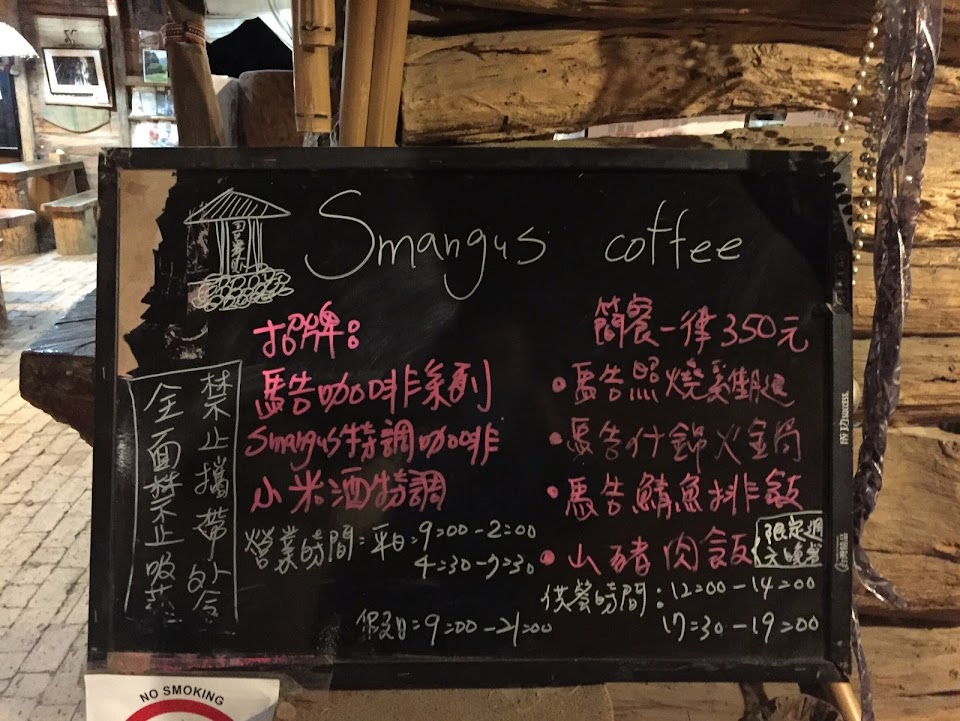 Smangus coffee
招牌:
馬告咖啡系列
Smangus特調咖啡
小米酒特調
營業時間:平日:9:00-2:00
4:30-7:30
假日:9:00-21:00
簡餐一律350元
•馬告照燒雞腿
•馬告什錦火鍋
•馬告鯖魚排飯
•山豬肉飯
限定週
供餐時間:12:00-14:00
17:30-19:00
禁止攜帶外食
全面禁止吸菸
NO SMOKING
成功 SUCCESS